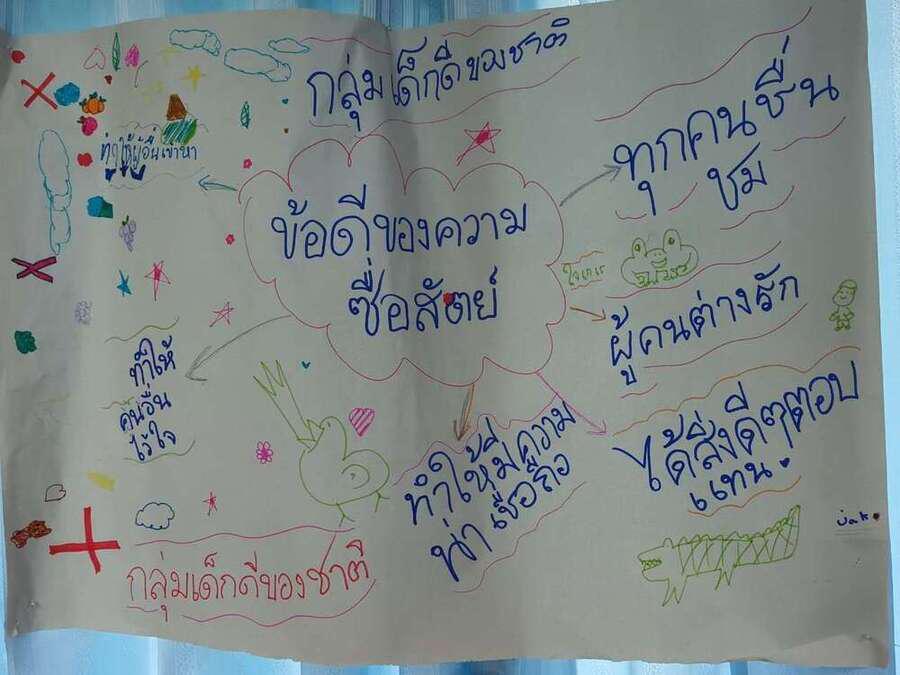 กลุ่มเด็กดีของชาติ
ข้อดีของความ
ซื่อสัตย์
ทุกคนชื่น
ชม
ผู้คนต่างรัก
ได้สิ่งดีๆตอบ
แทน
ทำให้มีความ
น่าเชื่อถือ
ทำให้
คนอื่น
ไว้ใจ
ทำให้ผู้อื่นเข้าหา
กลุ่มเด็กดีของชาติ